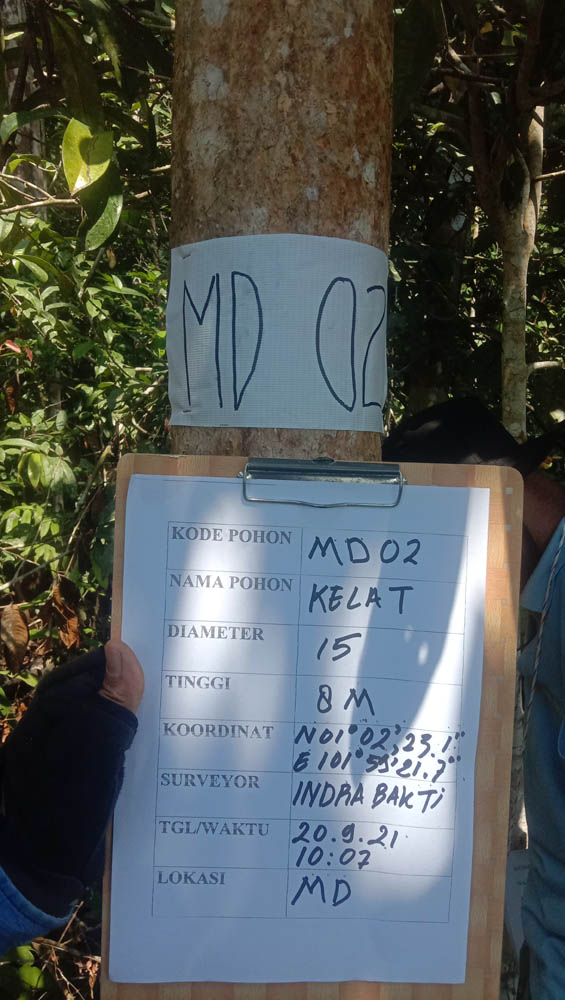 MD 02
KODE POHON MD02
NAMA POHON KELAT
DIAMETER 15
TINGGI 8 M
KOORDINAT N01°02',23.1"
E 101°59'21.7"
SURVEYOR INDRA BAKTI
TGL/WAKTU 20.9.21
10:07
LOKASI MD